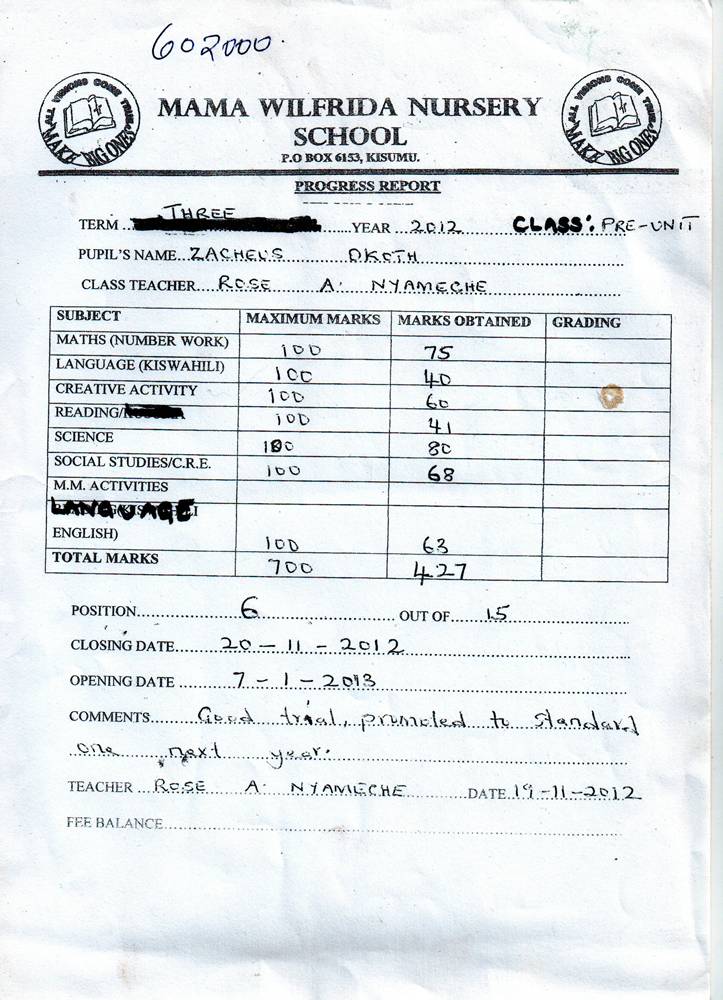 602000.
ALL VISIONS COME TRUE
MAKE BIG ONES
ALL VISIONS COME TRUE
MAKE BIG ONES
MAMA WILFRIDA NURSERY
SCHOOL
P.O BOX 6153, KISUMU.
PROGRESS REPORT
TERM .. THREE ......YEAR ...2012 CLASS: PRE-UNIT
PUPIL'S NAME...ZACHEUS OKOTH
CLASS TEACHER....ROSE A. NYAMECHE
SUBJECT MAXIMUM MARKS MARKS OBTAINED GRADING
MATHS (NUMBER WORK) 100 75
LANGUAGE (KISWAHILI) 100 40
CREATIVE ACTIVITY 100 60
READING/ 100 41
SCIENCE 100 80
SOCIAL STUDIES/C.R.E. 100 68
M.M. ACTIVITIES
LANGUAGE
ENGLISH) 100 63
TOTAL MARKS 700 427
POSITION......6......OUT OF......15
CLOSING DATE......20 - 11 - 2012
OPENING DATE ......7 - 1 - 2013
COMMENTS......Good trial, promoted to standard
one next year.
TEACHER ...ROSE A. NYAMECHE ......DATE 19-11-2012
FEE BALANCE......